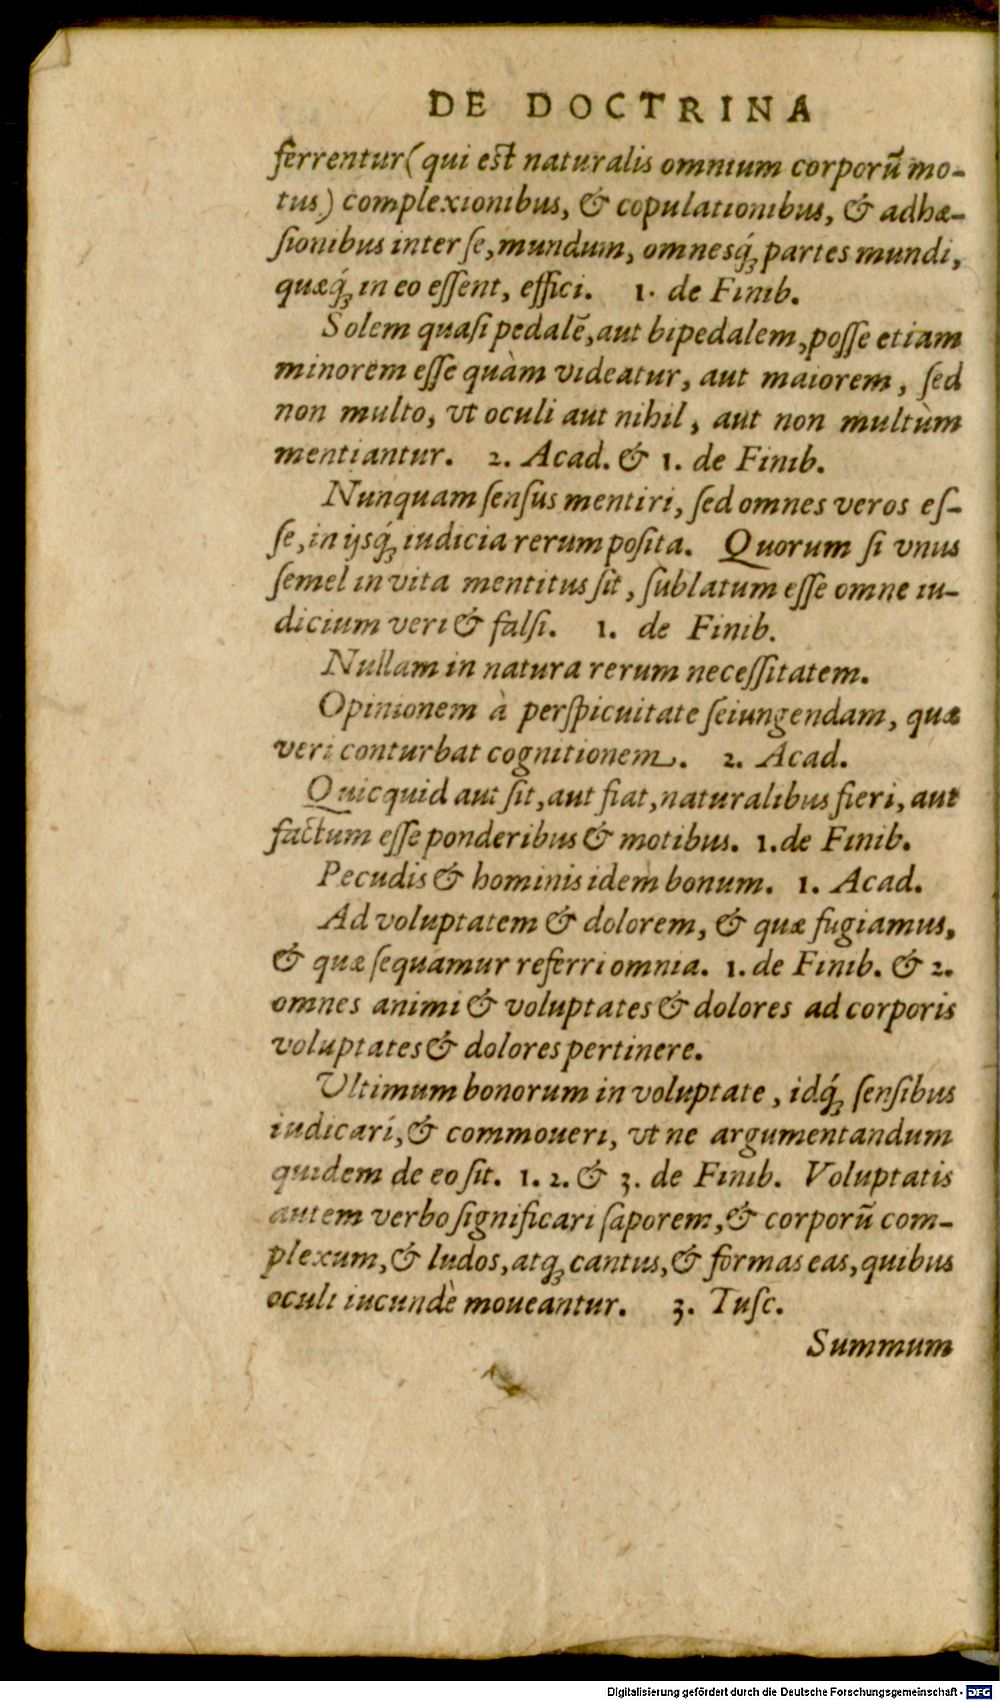 DE DOCTRINA
ferrentur (qui est naturalis omnium corporũ mo-
tus) complexionibus, & copulationibus, & adhæ-
ſionibus inter ſe, mundum, omnesq́ꝫ partes mundi,
quæq́ꝫ in eo eſſent, effici. 1. de Finib.
Solem quaſi pedalẽ, aut bipedalem, poſſe etiam
minorem eſſe quàm videatur, aut maiorem, ſed
non multo, vt oculi aut nihil, aut non multùm
mentiantur. 2. Acad. & 1. de Finib.
Nunquam ſenſus mentiri, ſed omnes veros eſ-
ſe, in ijsq́ꝫ iudicia rerum poſita. Quorum ſi vnus
ſemel in vita mentitus ſit, ſublatum eſſe omne iu-
dicium veri & falſi. 1. de Finib.
Nullam in natura rerum neceſſitatem.
Opinionem à perſpicuitate ſeiungendam, quæ
veri conturbat cognitionem. 2. Acad.
Quicquid aut ſit, aut fiat, naturalibus fieri, aut
factum eſſe ponderibus & motibus. 1. de Finib.
Pecudis & hominis idem bonum. 1. Acad.
Ad voluptatem & dolorem, & quæ fugiamus,
& quæ ſequamur referri omnia. 1. de Finib. & 2.
omnes animi & voluptates & dolores ad corporis
voluptates & dolores pertinere.
Vltimum bonorum in voluptate, idq́ꝫ ſenſibus
iudicari, & commoueri, vt ne argumentandum
quidem de eo ſit. 1. 2. & 3. de Finib. Voluptatis
autem verbo ſignificari ſaporem, & corporũ com-
plexum, & ludos, atqꝫ cantus, & formas eas, quibus
oculi iucundè moueantur. 3. Tuſc.
Summum
Digitalisierung gefördert durch die Deutsche Forschungsgemeinschaft - DFG